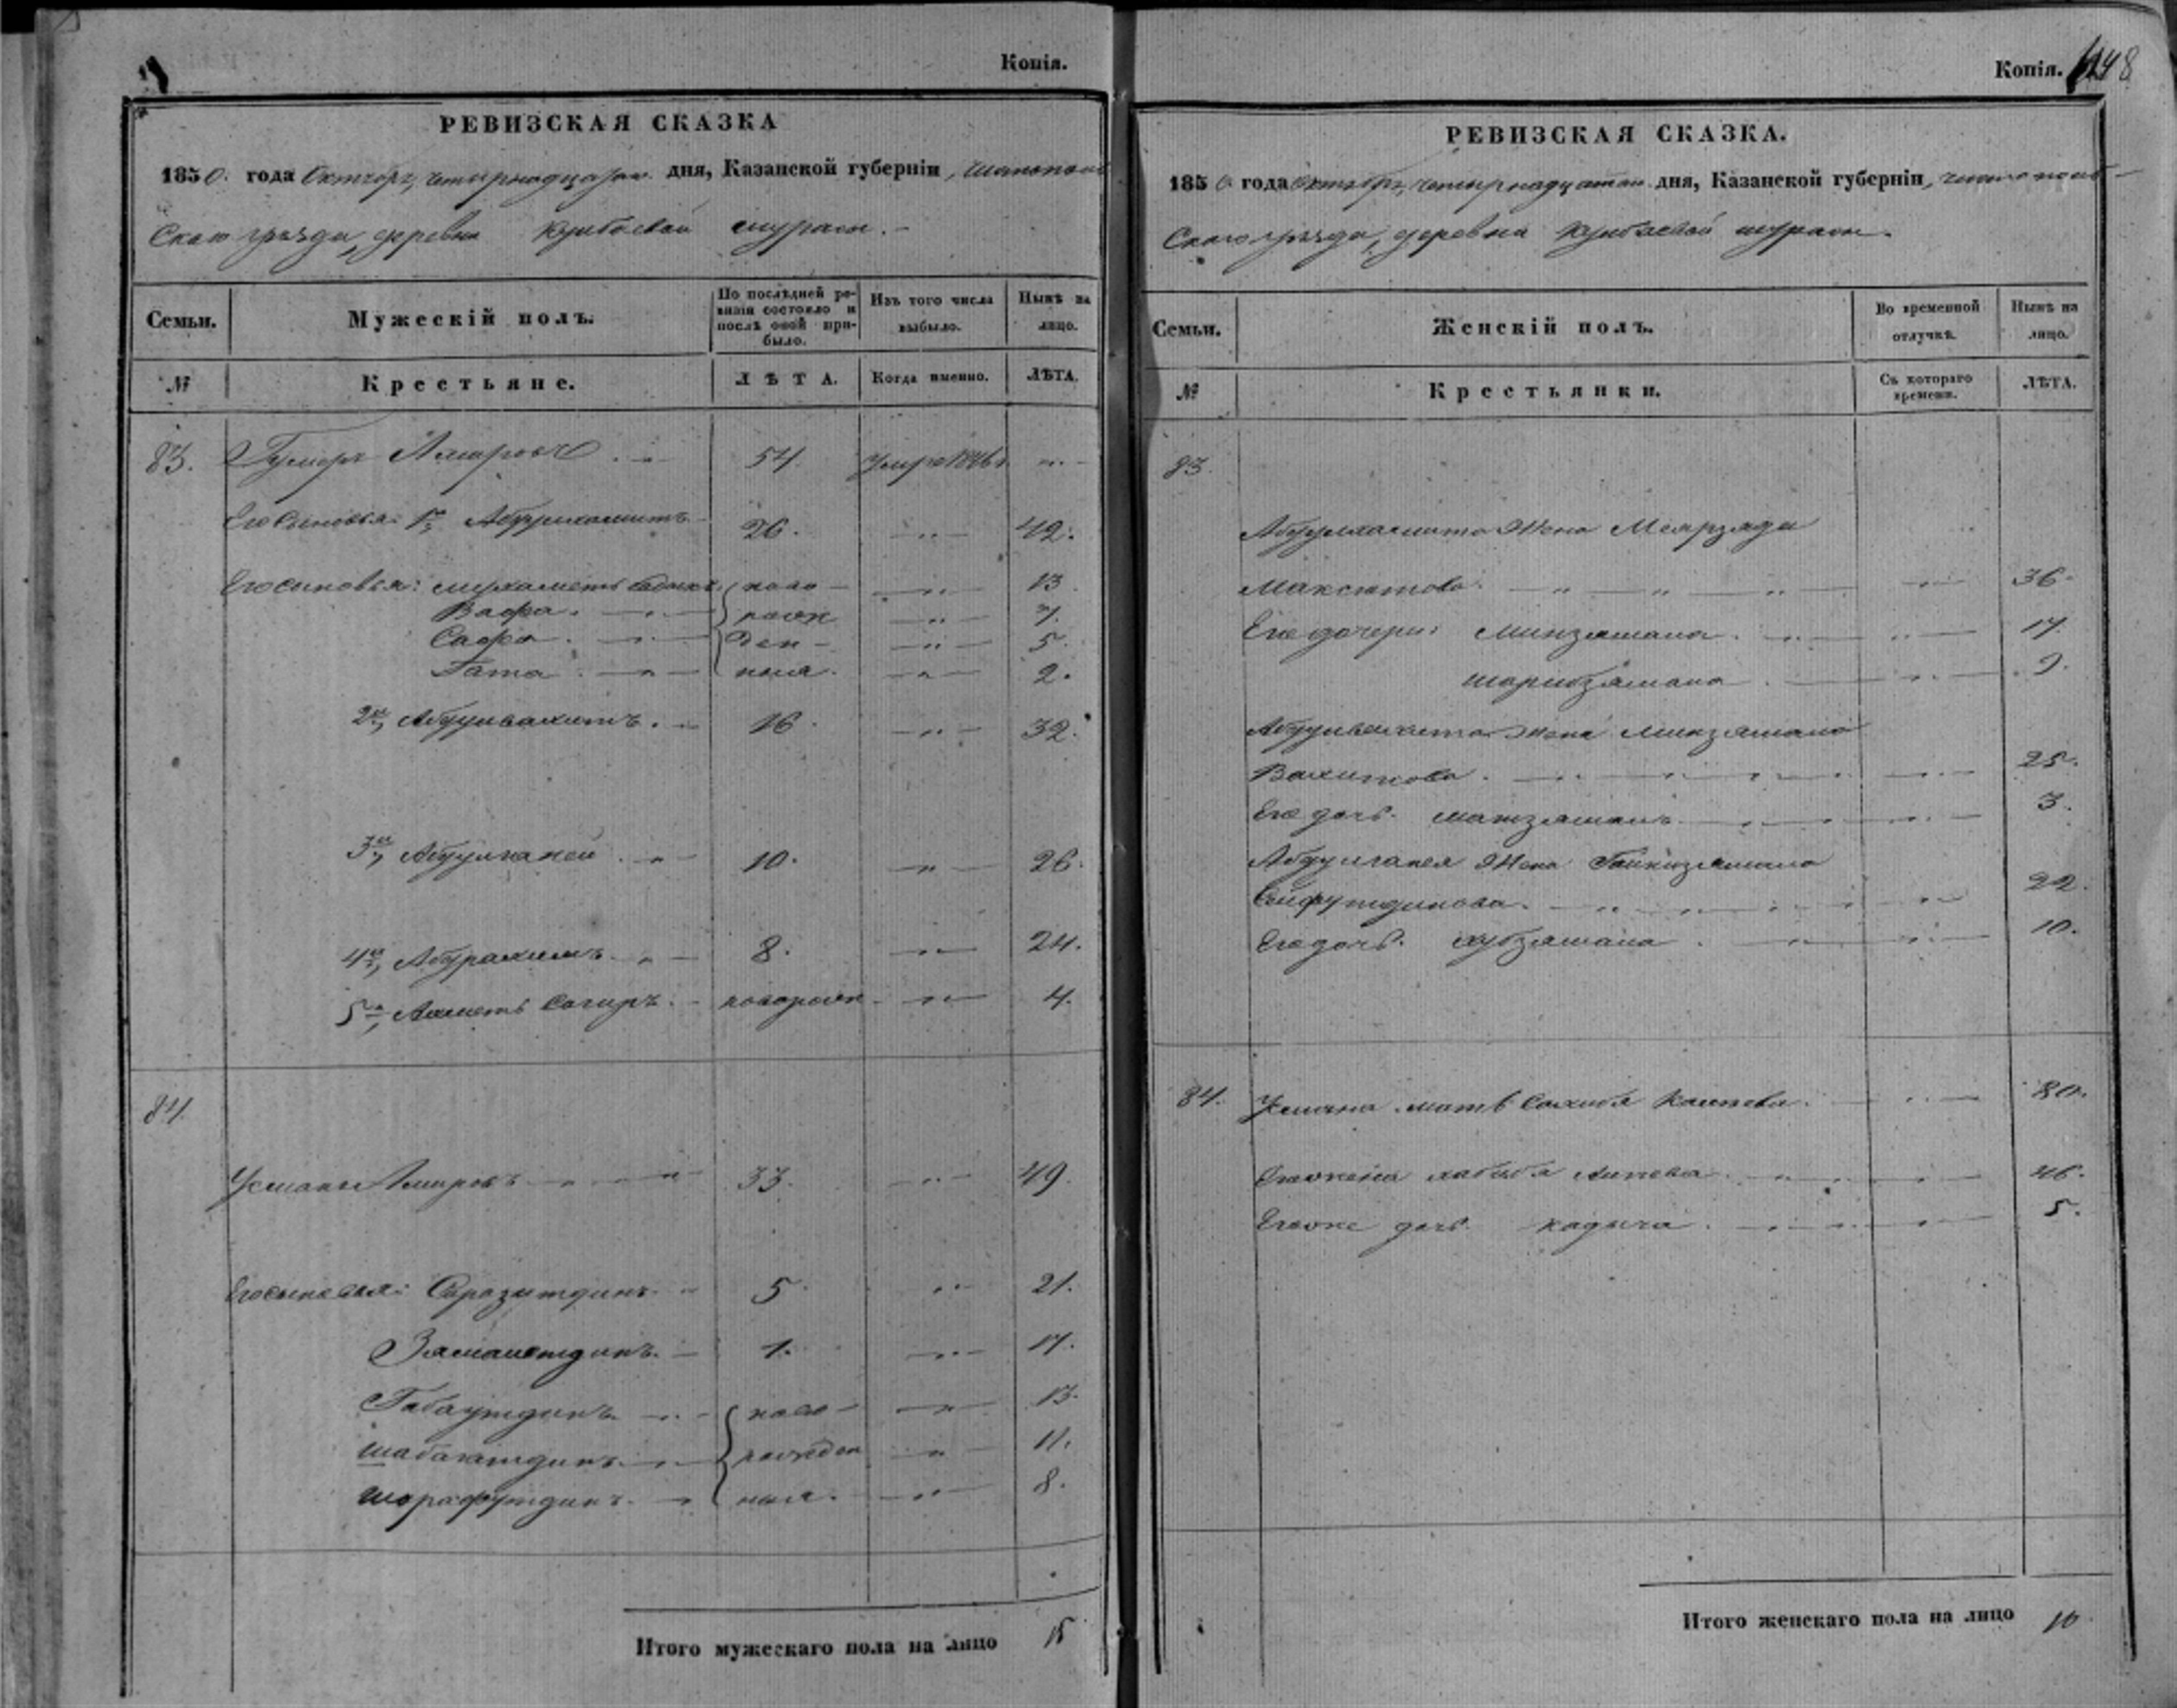 Копія.
РЕВИЗСКАЯ СКАЗКА
1850. года Октября четырнадцатаго дня, Казанской губерніи, Чистополь
скаго уѣзда, деревни Кутлушкиной
Семьи.
Мужескій полъ.
По послѣдней ре-
визіи состояло и
послѣ оной при-
было.
Изъ того числа
выбыло.
Нынѣ на
лицо.
№
Крестьяне.
ЛѢТА.
Когда именно.
ЛѢТА.
83. Гумеръ Амировъ 54. Умре 1846
Его сыновья: 1й Абдулхамитъ 26. 42.
Его сыновья: Мухаметь Садыкъ ново 13
Вафа. рож 7.
Сафа. ден 5.
Гата. ныя. 2.
2й, Абдулвахитъ. 16. 32.
3й, Абдулганей 10. 26.
4й, Абдрахимъ 8. 24.
5й, Ахметь Сагиръ. новорожд 4.
84.
Усманъ Амировъ 33. 49.
Его сыновья: Сиразитдинъ 5. 21.
Замалетдинъ. 1. 17.
Габаутдинъ ново 13.
Шабагатдинъ рожден 11.
Шарафутдинъ. ныя. 8.
Итого мужескаго пола на лицо 15
Копія. 248
РЕВИЗСКАЯ СКАЗКА.
1850 года Октября четырнадцатаго дня, Казанской губерніи, Чистополь
скаго уѣзда, деревни
Семьи.
Женскій полъ.
Во временной
отлучкѣ.
Нынѣ на
лицо.
№
Крестьянки.
Съ котораго
времени.
ЛѢТА.
83.
Абдулхамита Жена Меярзяда
Максютова. 36.
Его дочери: Минзямала. 17.
Шарибзямала. 9.
Абдулвахита Жена Минзямала
Вахитова. 25.
Его дочь. 3.
Абдулганея Жена
Сейфутдинова. 22.
Его дочь. Хубзямала. 10.
84. Усмана мать Сахибя 80.
Его жена Хабибя 46.
Его же дочь. Хадыча. 5.
Итого женскаго пола на лицо 10.